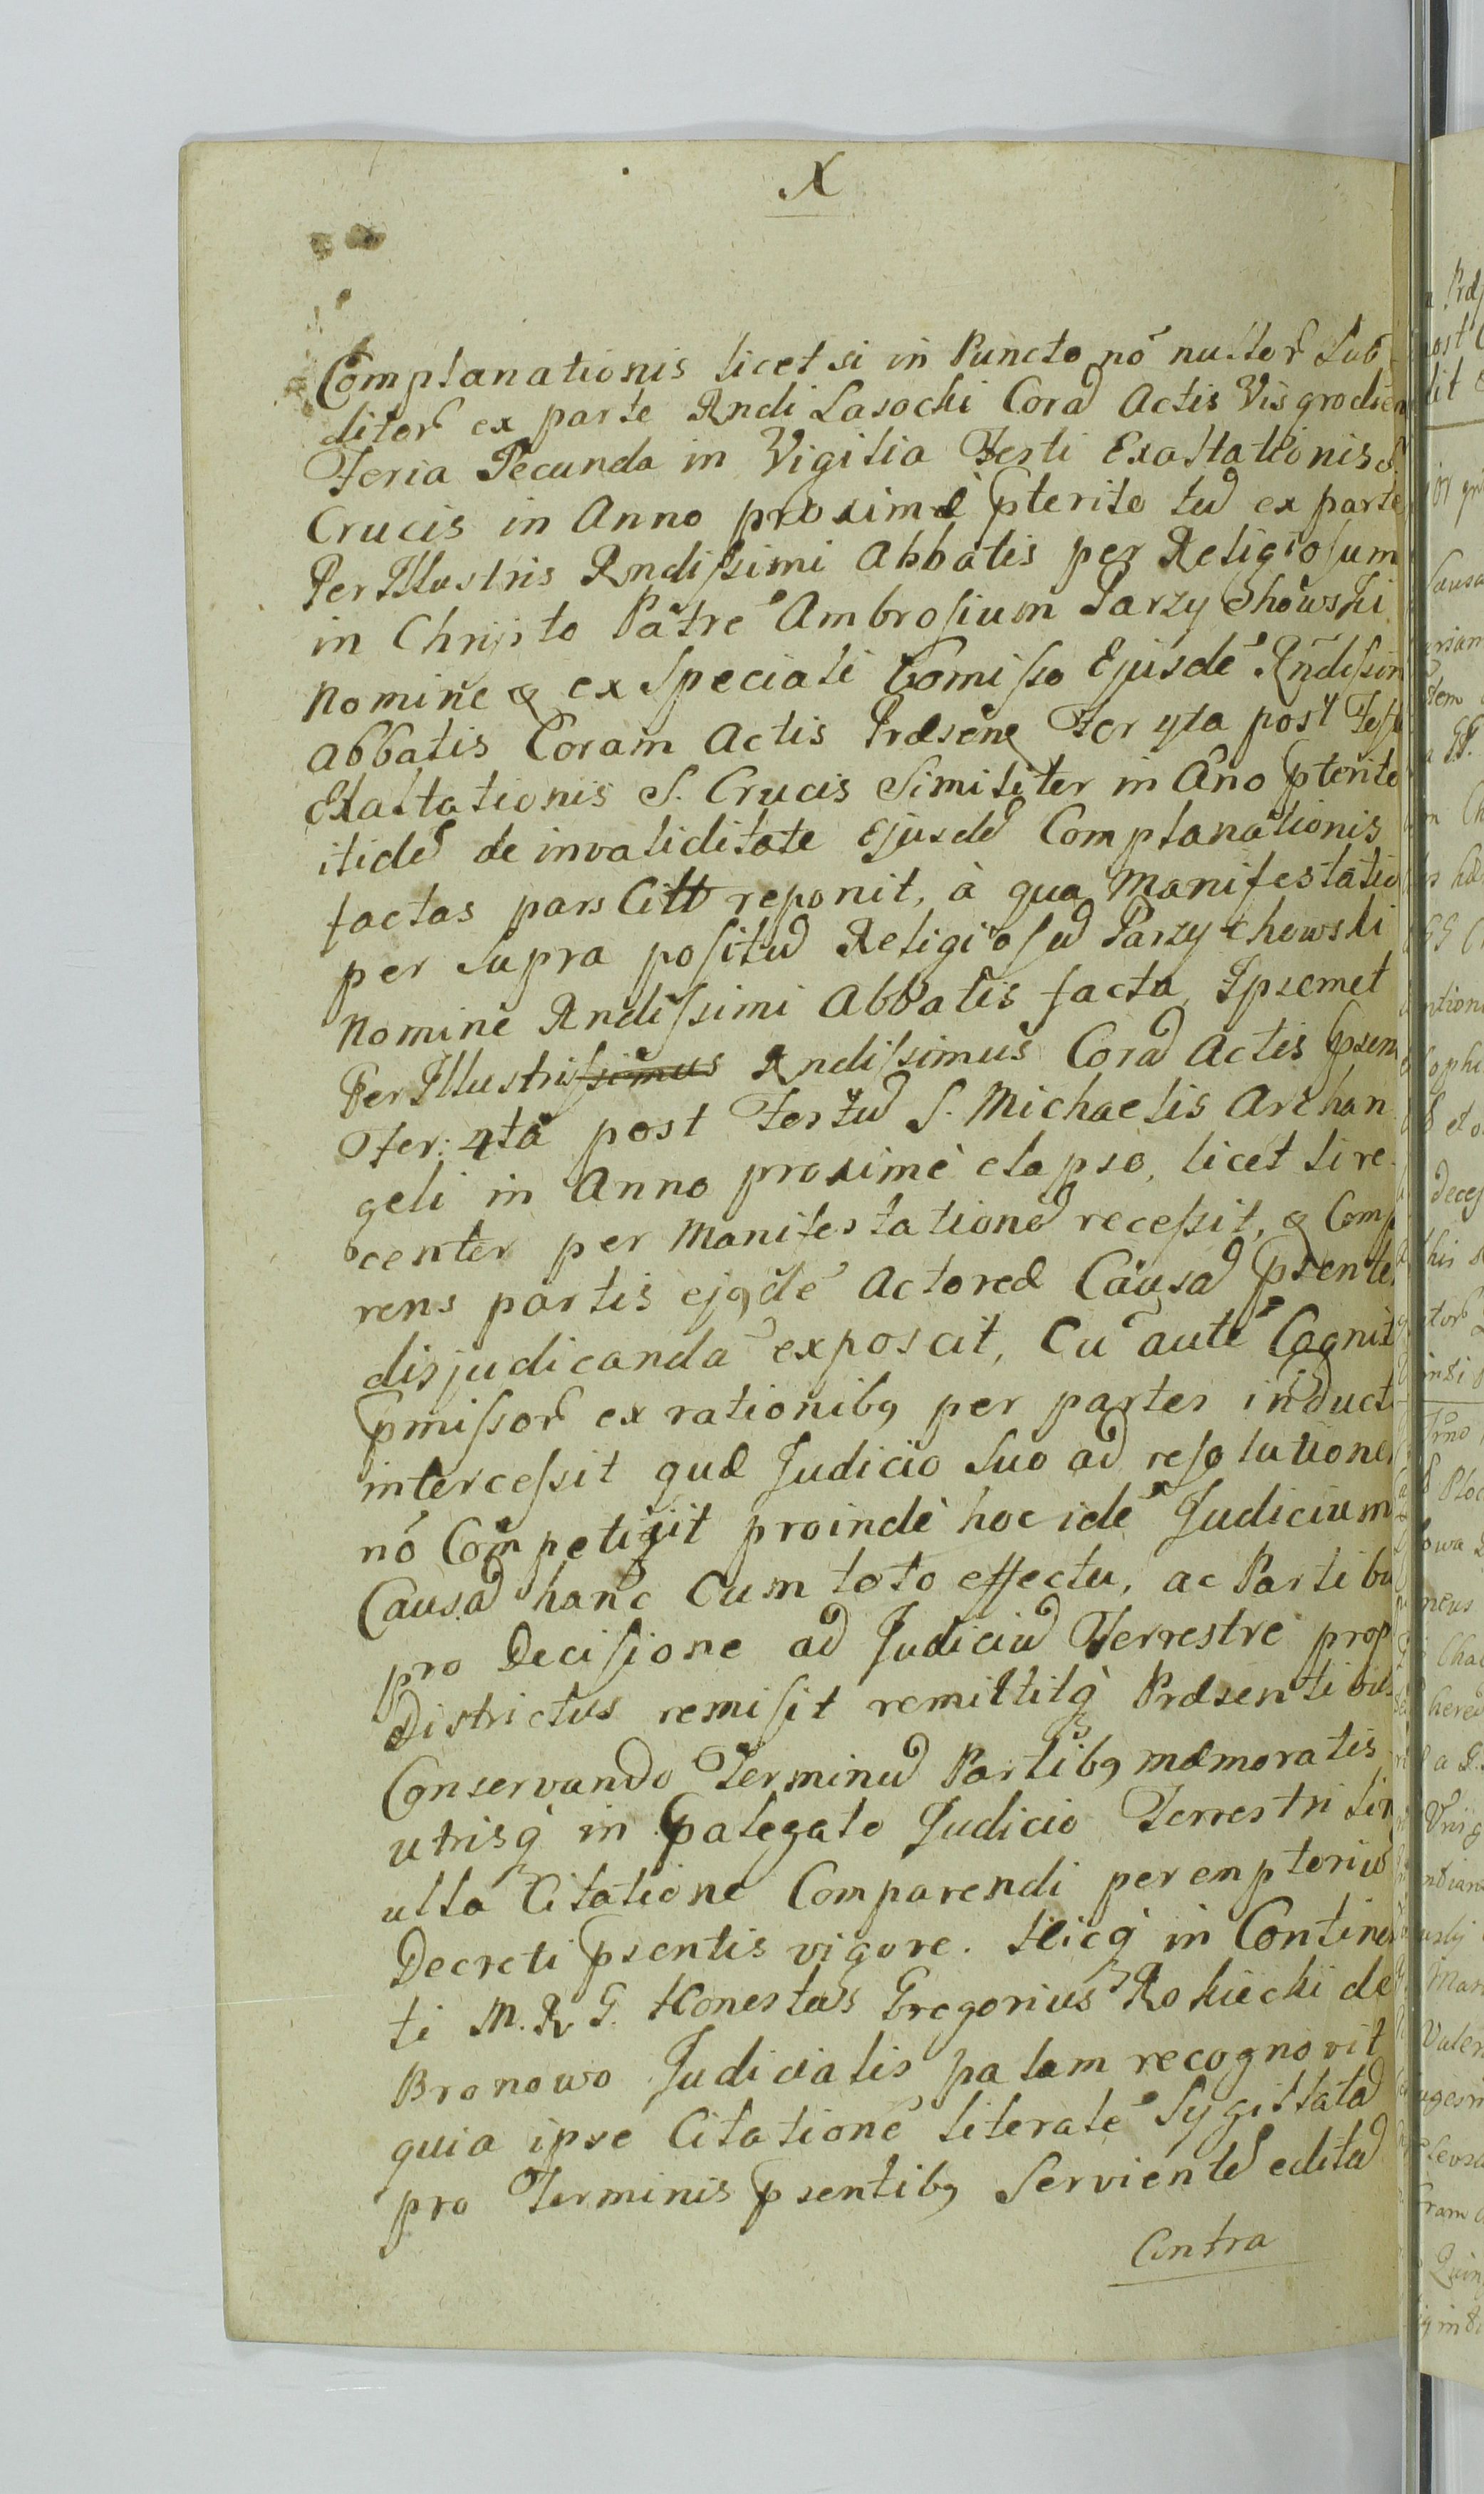 X
Complanationis licet si in Puncto nō nullor Sub
ditor ex parte Rndi Lasocki Corã Actis Visgrodien
Feria Secunda in Vigilia Festi Exaltationis S.
Crucis in Anno proximè pterito tũ ex parte
Per Illustris Rndissimi Abbatis per Religiosum
in Christo Patrē Ambrosium Parzychowski
Nomine & ex speciali Comisso Ejusdē Rndissim
Abbatis Coram Actis Præsenq Fer 4ta post Fest
Exaltationis S. Crucis Similiter in Ano pterito
itidẽ de invaliditate Ejusdẽ Complanationis
factas pars Citt reponit, à qua Manifestatio
per Supra positũ Religiosũ Parzychowski
Nomine Rndissimi Abbatis facta, Ipsemet
Per Illustrissimus Rndissimus Corã Actis psen
Fer: 4tā post Festũ S. Michaelis Archan
geli in Anno proximè elapso, licet si re
center per Manifestationẽ recessit, & Comp
rens partis ejqdē Actoreæ Causã psente
disjudicandā exposcit, Cū autē Cognit
pmissor ex rationibq per partes induct
intercessit quæ Judicio Suo ad resolutione
nō Competijt proindè hoc idē Judicium
Causã hanc Cum toto effectu, ac Partibu
pro Decisione ad Judiciũ Terrestre prop
Districtus remisit remittitq Præsentibus
Conservando Terminũ Partibq mæmoratis
utrisq in palegato Judicio Terrestri Sin
ulla Citatione Comparendi peremptoriũ
Decreti psentis vigore. Hicq in Continen
ti M. R G. Honestus Gregorius Rokicki de
Bronowo Judicialis palam recognovit
quia ipse Citationē literalē Sygillatã
pro Terminis psentibq Servientẽ editã
Contra